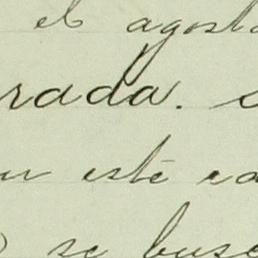 el agosto
rada. s
este ca
se busc